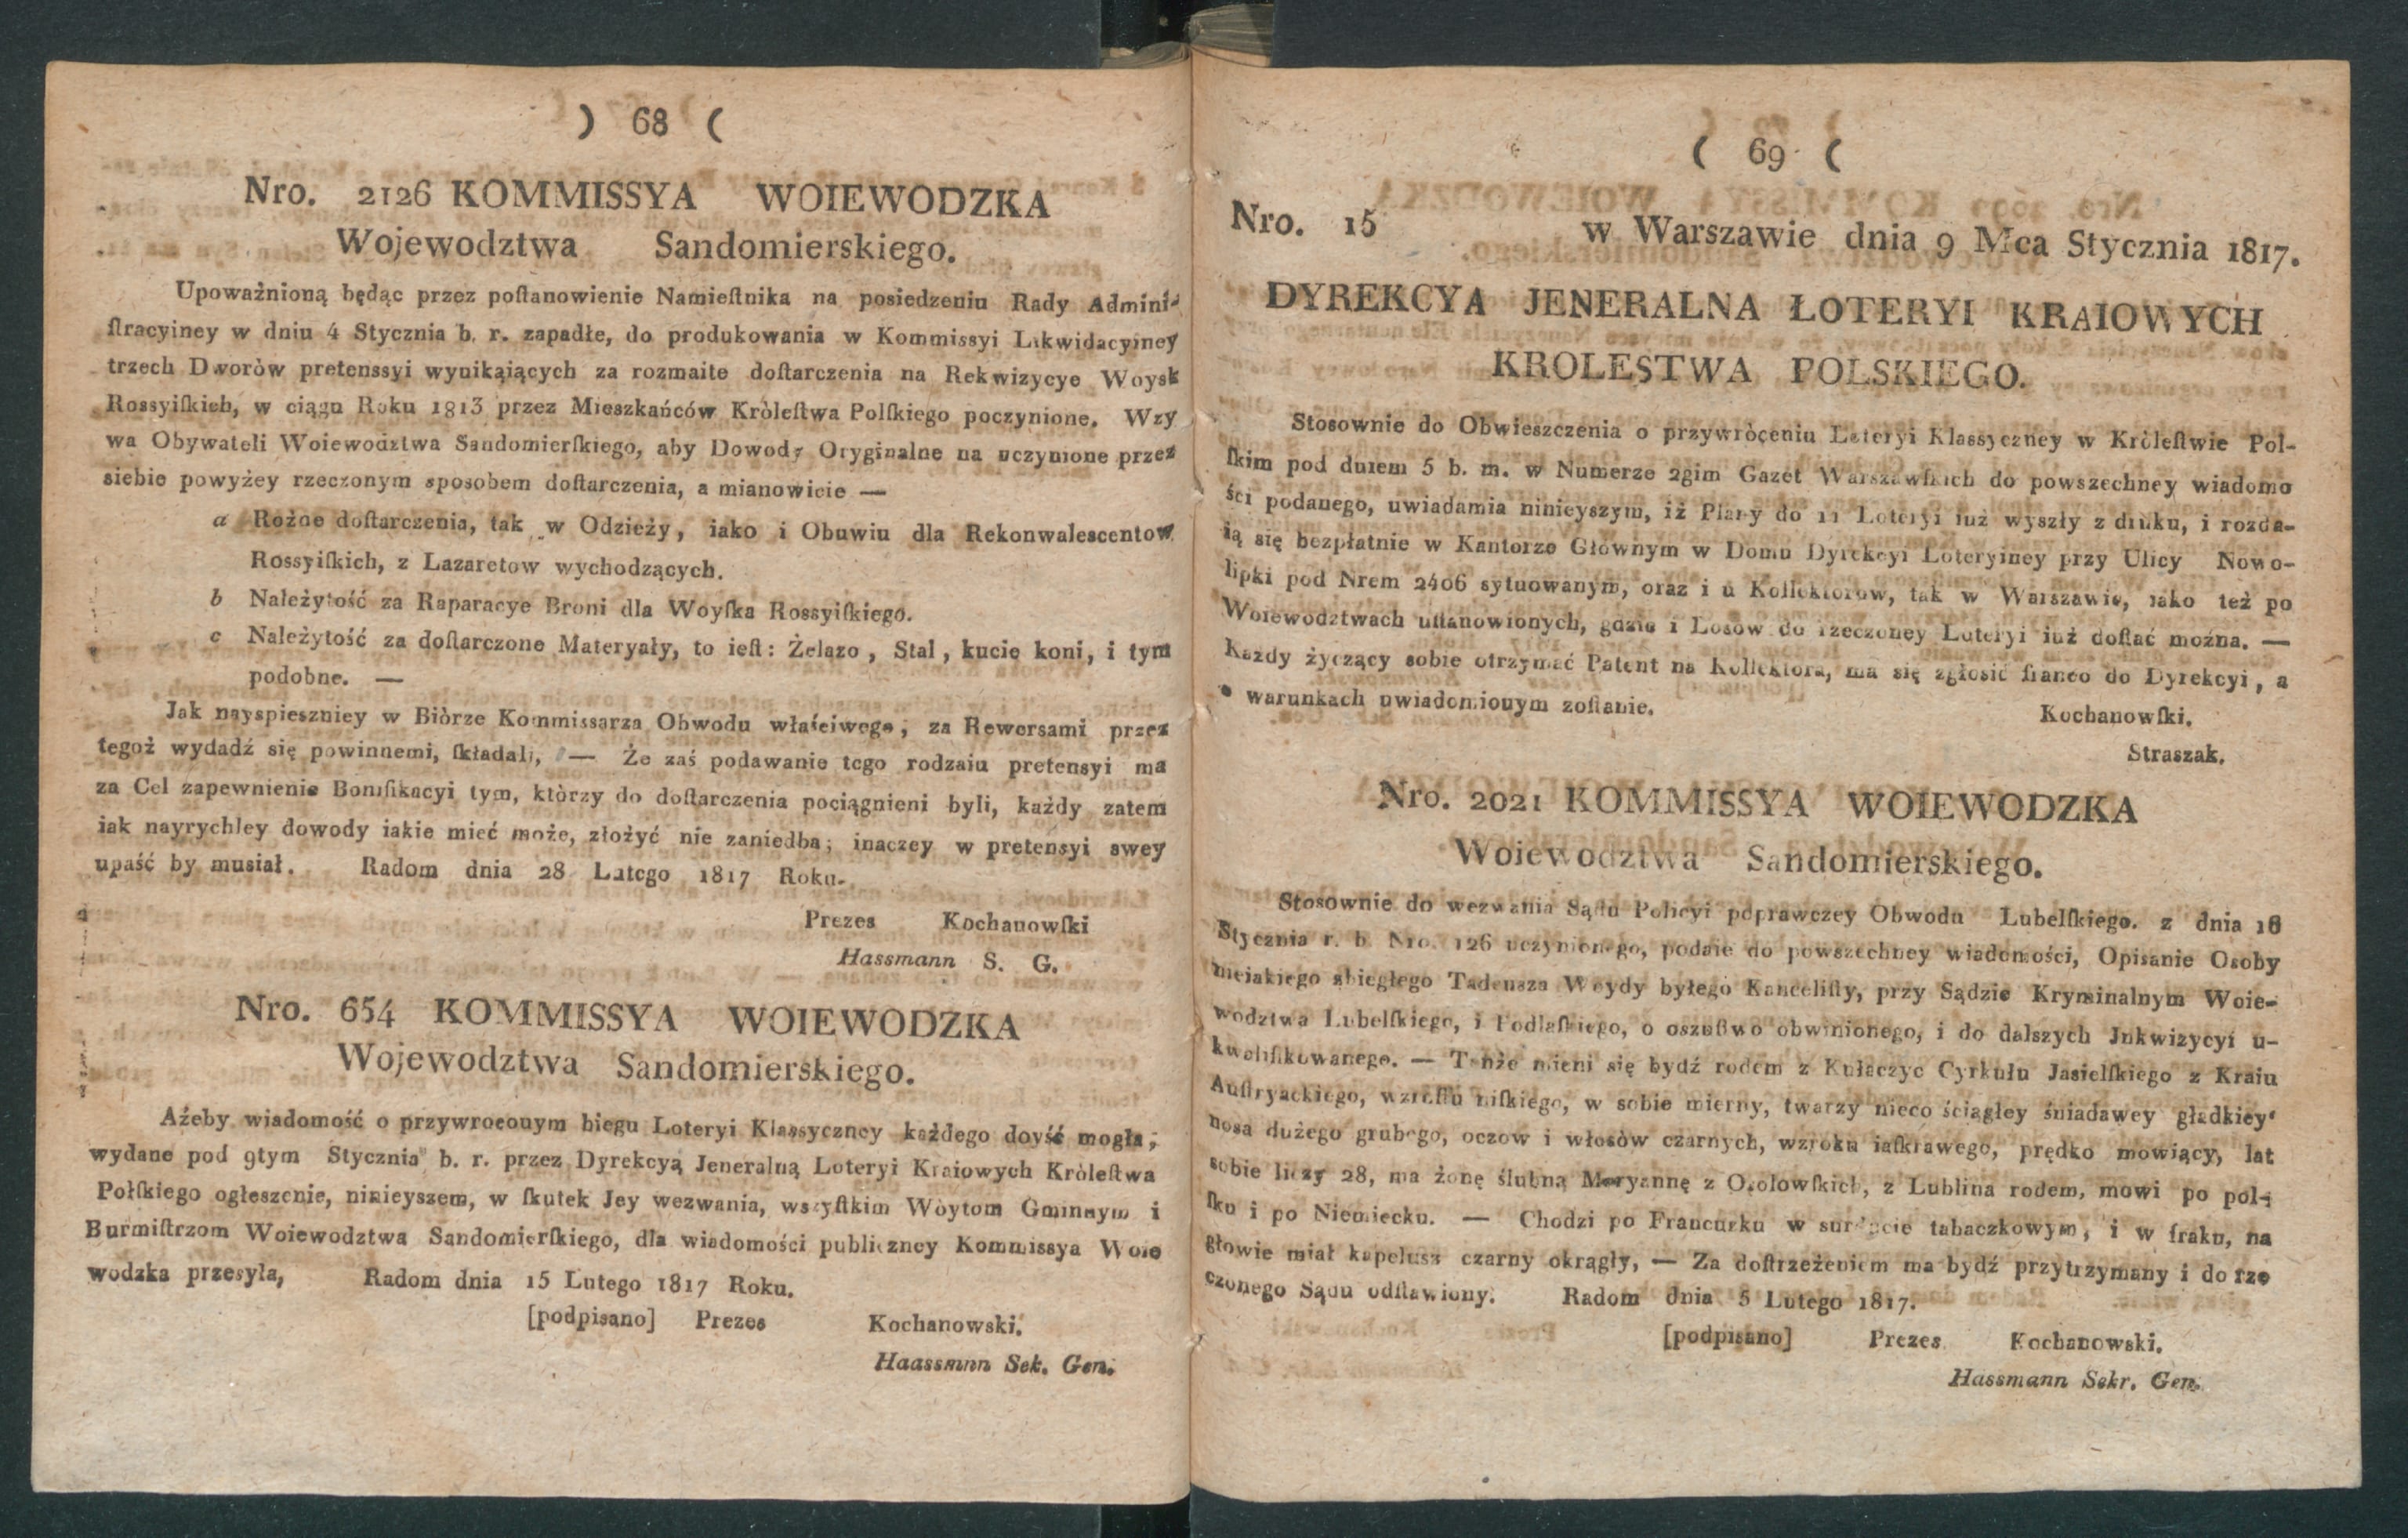 ) 68 (
Nro. 2126 KOMMISSYA WOIEWODZKA
Wojewodztwa Sandomierskiego.
Upoważnioną będąc przez poſtanowienie Namieſtnika na posiedzeniu Rady Admini-
ſtracyiney w dniu 4 Stycznia b. r. zapadłe, do produkowania w Kommissyi Likwidacyiney
trzech Dworòw pretenssyi wynikąiących za rozmaite doſtarczenia na Rekwizycye Woysk
Rossyiſkich, w ciągu Roku 1813 przez Mieszkańców Kròleſtwa Polſkiego poczynione. Wzy
wa Obywateli Woiewodztwa Sandomierſkiego, aby Dowody Oryginalne na uczynione przez
siebie powyżey rzeczonym sposobem doſtarczenia, a mianowicie —
a Rożne doſtarczenia, tak w Odzieży, iako i Obuwiu dla Rekonwalescentow
Rossyiſkich, z Lazaretow wychodzących.
b Należytość za Raparacye Broni dla Woyſka Rossyiſkiego.
c Należytość za doſtarczone Materyały, to ieſt: Żelazo, Stal, kucie koni, i tym
podobne. —
Jak nayspieszniey w Biòrze Kommissarza Obwodu właściwego, za Rewersami przez
tegoż wydadź się powinnemi, ſkładali, — Że zaś podawanie tego rodzaiu pretensyi ma
za Cel zapewnienie Bonifikacyi tym, ktòrzy do doſtarczenia pociągnieni byli, każdy zatem
iak nayrychley dowody iakie mieć może, złożyć nie zaniedba; inaczey w pretensyi swey
upaść by musiał. Radom dnia 28 Lutego 1817 Roku.
Prezes Kochanowſki
Hassmann S. G.
Nro. 654 KOMMISSYA WOIEWODZKA
Wojewodztwa Sandomierskiego.
Ażeby wiadomość o przywroconym biegu Loteryi Klassyczney każdego doyść mogła,
wydane pod 9tym Stycznia b. r. przez Dyrekcyą Jeneralną Loteryi Kraiowych Kròleſtwa
Polſkiego ogłeszenie, ninieyszem, w ſkutek Jey wezwania, wszyſtkim Wòytom Gminnym i
Burmiſtrzom Woiewodztwa Sandomierſkiego, dla wiadomości publiczney Kommissya Woie
wodzka przesyła, Radom dnia 15 Lutego 1817 Roku.
[podpisano] Prezes Kochanowski.
Haassmnn Sek. Gen.
( 69 (
Nro. 15 w Warszawie dnia 9 Mca Stycznia 1817.
DYREKCYA JENERALNA ŁOTERYI KRAIOWYCH
KROLESTWA POLSKIEGO.
Stosownie do Obwieszczenia o przywròceniu Loteryi Klassyczney w Kròleſtwie Pol-
ſkim pod dniem 5 b. m. w Numerze 2gim Gazet Warszawſkich do powszechney wiadomo
ści podanego, uwiadamia ninieyszym, iż Plany do 11 Loteryi iuż wyszły z druku, i rozda-
ią się bezpłatnie w Kantorze Głownym w Domu Dyrekcyi Loteryiney przy Ulicy Nowo-
lipki pod Nrem 2406 sytuowanym, oraz i u Kollektorow, tak w Warszawie, iako też po
Woiewodztwach uſtanowionych, gdzie i Losow do rzeczoney Loteryi iuż doſtać można. —
Każdy życzący sobie otrzymać Patent na Kollektora, ma się zgłosić franco do Dyrekcyi, a
o warunkach uwiadomionym zoſtanie.
Kochanowſki.
Straszak.
Nro. 2021 KOMMISSYA WOIEWODZKA
Woiewodztwa Sandomierskiego.
Stosownie do wezwania Sądu Policyi poprawczey Obwodu Lubelſkiego. z dnia 16
Stycznia r. b. Nro. 126 uczynionego, podaie do powszechney wiadomości, Opisanie Osoby
nieiakiego zbiegłego Tadeusza Weydy byłego Kancelliſty, przy Sądzie Kryminalnym Woie-
wodztwa Lubelſkiego, i Podlaſkiego, o oszuſtwo obwinionego, i do dalszych Jnkwizycyi u-
kwalifikowanego. — Tenże mieni się bydź rodem z Kułaczyc Cyrkułu Jasielſkiego z Kraiu
Auſtryackiego, wzroſtu niſkiego, w sobie mierny, twarzy nieco ściągłey śniadawey gładkiey
nosa dużego grubego, oczow i włosòw czarnych, wzroku iaſkrawego, prędko mowiący, lat
sobie liczy 28, ma żonę ślubną Maryannę z Osołowſkich, z Lublina rodem, mowi po pol-
ſku i po Niemiecku. — Chodzi po Francuzku w surducie tabaczkowym, i w fraku, na
głowie miał kapelusz czarny okrągły, — Za doſtrzeżeniem ma bydź przytrzymany i do rze
czonego Sądu odſtawiony. Radom dnia 5 Lutego 1817.
[podpisano] Prezes Kochanowski.
Hassmann Sekr. Gen.